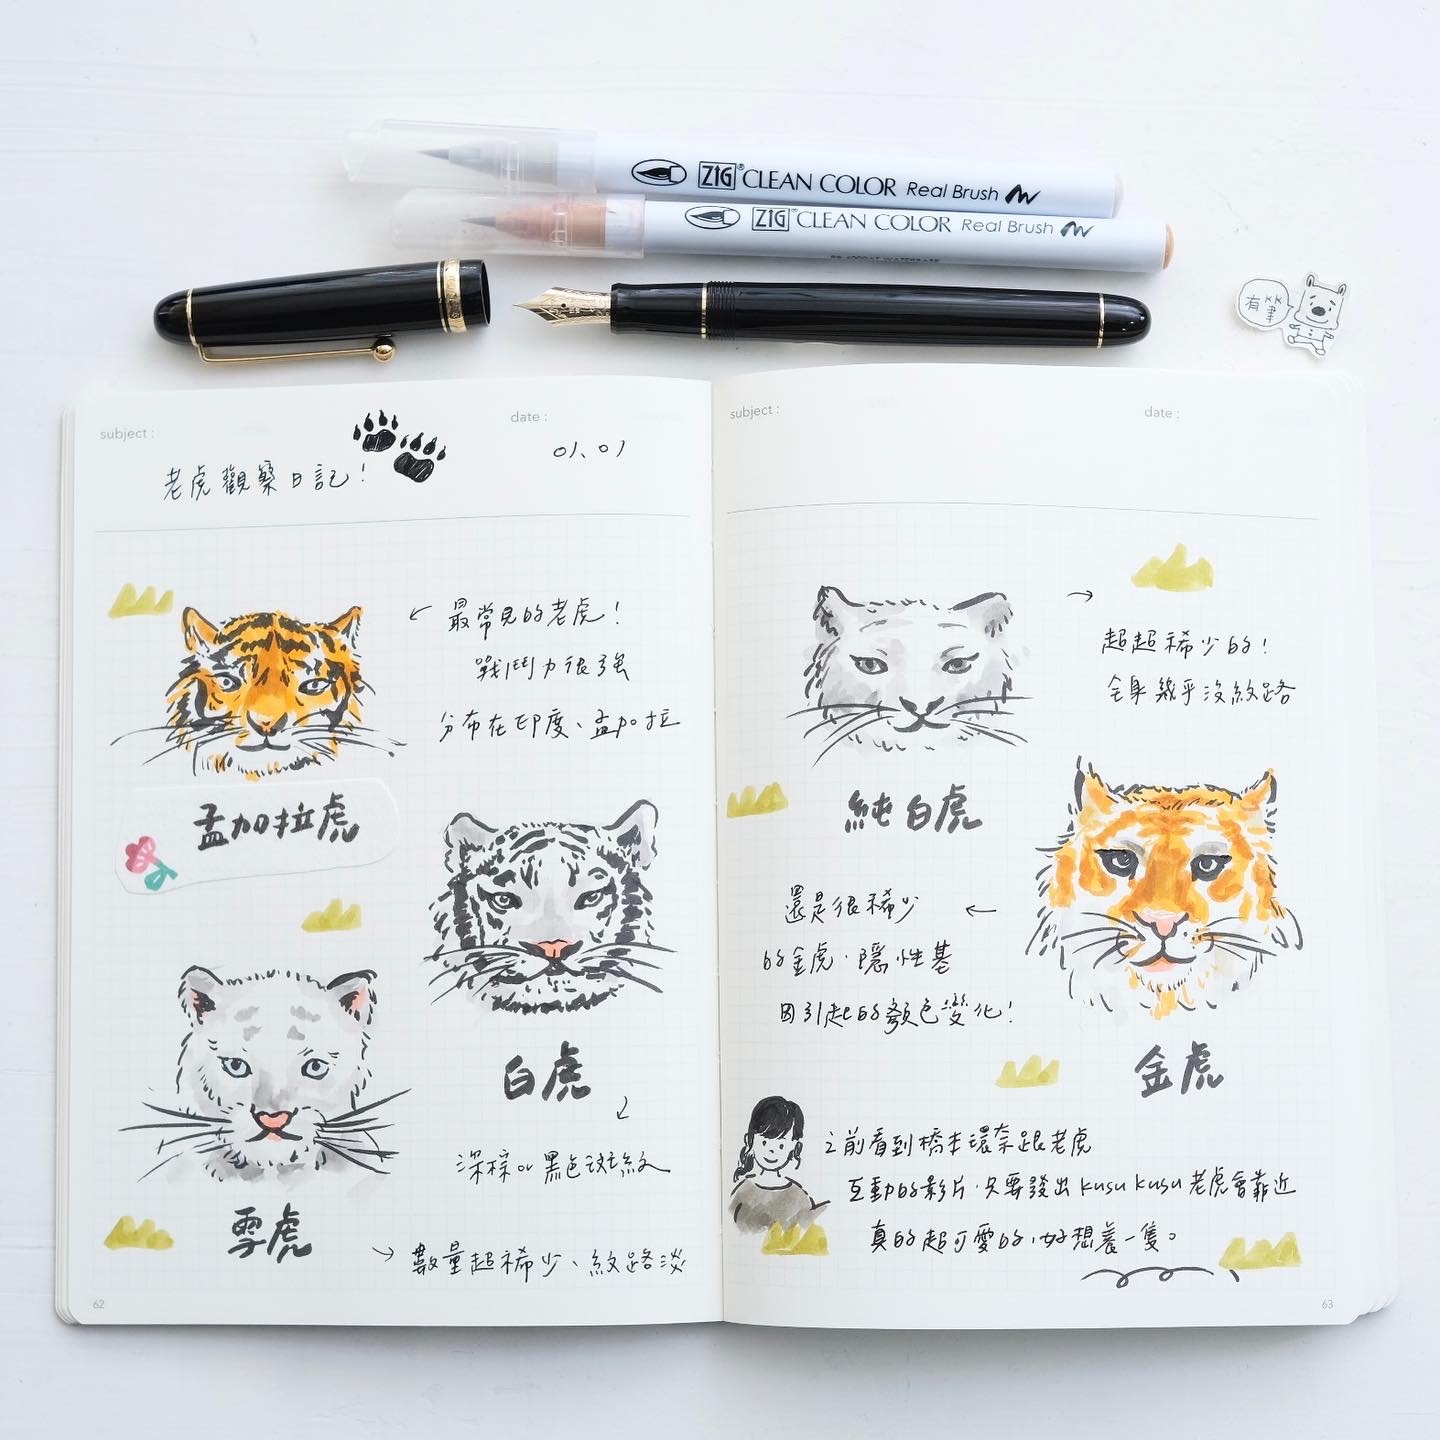 ZIG CLEAN COLOR Real Brush
ZIG CLEAN COLOR Real Brush
有筆
subject :
date :
01、01
老虎觀察日記！
最常見的老虎！
戰鬥力很強
分布在印度、孟加拉
孟加拉虎
白虎
深棕or黑色斑紋
雪虎
數量超稀少、紋路淡
62
subject :
date :
超超稀少的！
全身幾乎沒紋路
純白虎
還是很稀少
的金虎．隱性基
因引起的顏色變化！
金虎
之前看到橋本環奈跟老虎
互動的影片．只要發出kusu kusu老虎會靠近
真的超可愛的，好想養一隻。
63